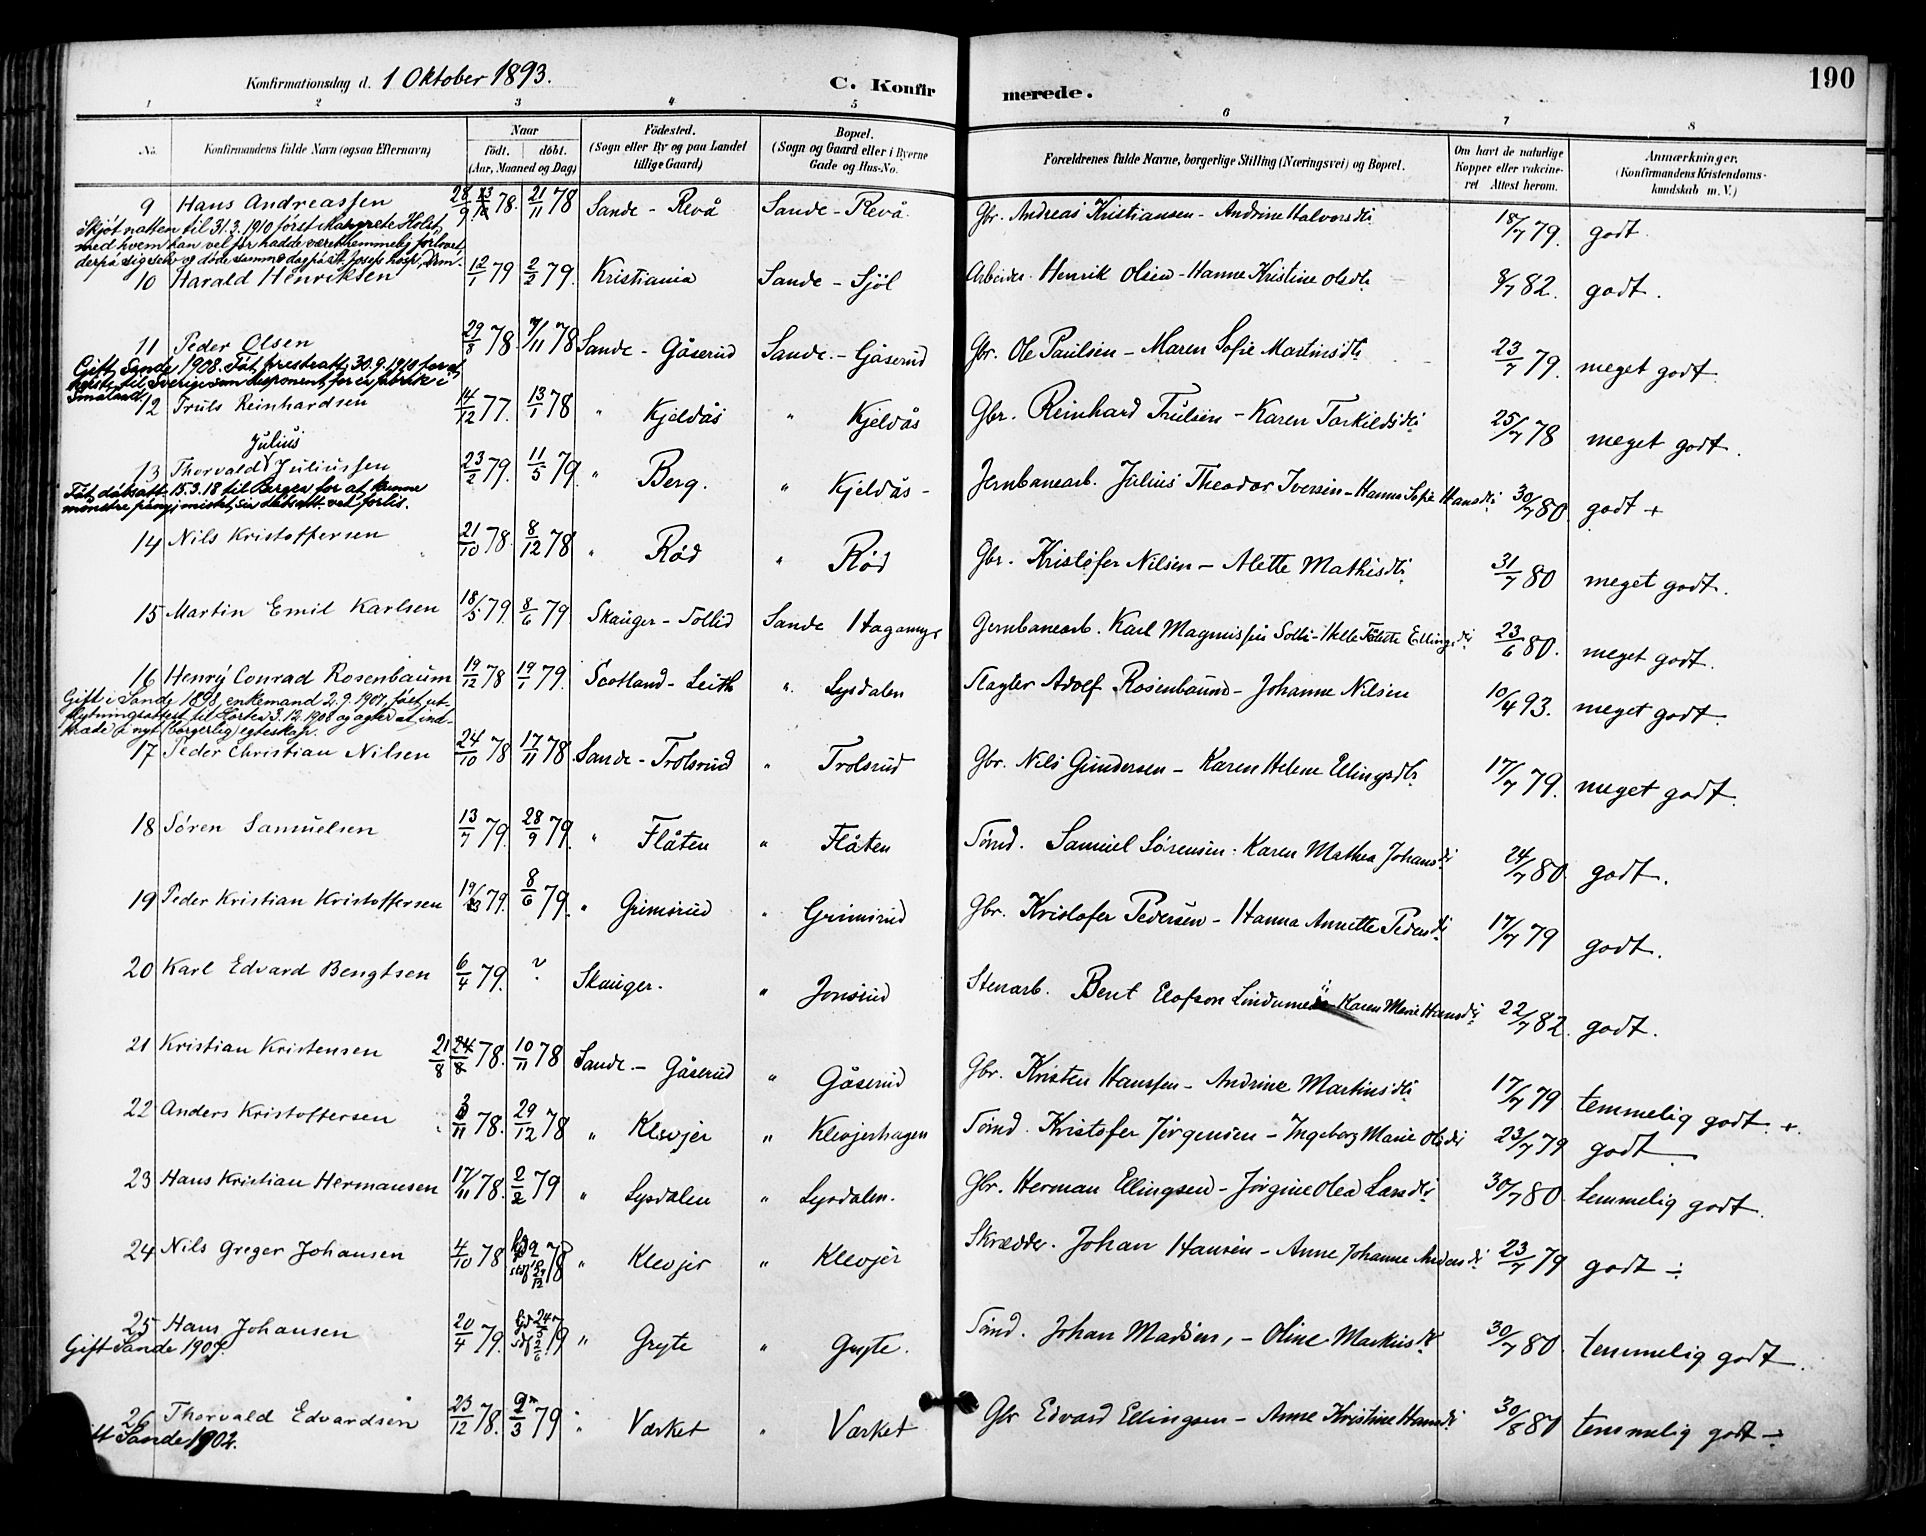 Konfirmationsdag d. 1 Oktober 1893.
C. Konfirmerede.
190
1 2 3 4 5 6 7 8
No. Konfirmandens fulde Navn (ogsaa Efternavn) Naar födt. döbt. (Aar, Maaned og Dag) Födested. (Sogn eller By og paa Landet tillige Gaard) Bopæl. (Sogn og Gaard eller i Byerne Gade og Hus-No. Forældrenes fulde Navne, borgerlige Stilling (Næringsvei) og Bopæl. Om havt de naturlige Kopper eller vakcineret Attest herom. Anmærkninger. (Konfirmandens Kristendomskundskab m. V.)
9 Hans Andreassen 28/9 78. 21/11 78 Sande - Revå Sande - Revå. Gbr. Andreas Kristiansen - Andrine Halvorsdtr 18/7 79. godt.
Skjøt natten til 31.3.1910 først Margrete Holst,
med hvem han vel før hadde været hemmelig forlovet,
derpå sig selv og døde samme dag på St. Josefs hosp., Drm.
10 Harald Henriksen 12/1 79 2/2 79. Kristiania Sande - Sjöl Arbeider Henrik Olsen - Hanne Kristine Olsdtr 8/7 82. godt.
11 Peder Olsen 29/8 78. 7/11 78 Sande - Gåserud Sande - Gåserud Gbr. Ole Paulsen - Maren Sofie Martinsdtr 23/7 79. meget godt.
Gift Sande 1908. Fåt presteatt. 30.9.1910 for at
reise til Sverige som disponent for en fabrik i
Småland
12 Truls Reinhardsen 14/12 77. 13/1 78 " Kjeldås " Kjeldås Gbr. Reinhard Trulsen - Karen Torkildsdtr 25/7 78 meget godt.
Julius
13 Thorvald Juliussen 23/2 79. 11/5 79. " Berg. " Kjeldås - Jernbanearb. Julius Theodor Iversen - Hanna Sofie Hansdtr 30/7 80. godt +
Fåt dåbsatt. 15.3.18 til Bergen for at kunne
mønstre påny; mistet sin dåbsatt. ved forlis.
14 Nils Kristoffersen 21/10 78. 8/12 78 " Rød " Rød Gbr. Kristofer Nilsen - Alette Mathisdtr 31/7 80 meget godt.
15 Martin Emil Karlsen 18/5 79. 8/6 79 Skauger - Tollid Sande Hagamyr Jernbanearb. Karl Magnussen Solli - Helle Ellingsdtr 23/6 80. meget godt.
16 Henry Conrad Rosenbaum 19/12 78 19/1 79. Scotland - Leith " Lysdalen Slagter Adolf Rosenbaum - Johanne Nilsen 10/4 93. meget godt.
Gift i Sande 1898, enkemand 2.9.1907, fået ut-
flytningsattest til Horten 3.12.1908 og agter at ind-
træde i nyt (borgerlig) egteskap.
17 Peder Christian Nilsen 24/10 78 17/11 78 Sande - Trolsrud " Trolsrud Gbr. Nils Gundersen - Karen Helene Ellingsdtr 17/7 79. meget godt.
18 Søren Samuelsen 13/7 79. 28/9 79. " Flåten " Flåten Tømd. Samuel Sørensen - Karen Mathea Johansdtr 24/7 80. godt.
19 Peder Kristian Kristoffersen 19/3 79. 8/6 79. " Grimsrud " Grimsrud Gbr. Kristofer Pedersen - Hanna Annette Pedersdtr 17/7 79 godt.
20 Karl Edvard Bengtsen 6/4 79. ? Skauger. " Jonsrud Stenarb. Bent Elofson - Karen Marie Hansdtr 22/7 82. godt.
21 Kristian Kristensen 21/8 24/8 78. 10/11 78 Sande - Gåserud " Gåserud Gbr. Kristen Hanssen - Andrine Martinsdtr 17/7 79 temmelig godt. +
22 Anders Kristoffersen 3/11 78. 29/12 78 " Klevjer " Klevjerhagen Tømd. Kristofer Jørgensen - Ingeborg Marie Olsdtr 23/7 79 godt.
23 Hans Kristian Hermansen 17/11 78. 2/2 79 " Lysdalen " Lysdalen. Gbr. Herman Ellingsen - Jørgine Olea Larsdtr 30/7 80. temmelig godt.
24 Nils Greger Johansen 4/10 78 78 " Klevjer " Klevjer Skrædder. Johan Hansen - Anne Johanne Andersdtr 23/7 79 godt ÷
25 Hans Johansen 20/4 79. 79 " Gryte " Gryte. Tømd. Johan Madsen, - Oline Markusdtr 30/7 80. temmelig godt.
Gift Sande 1907.
26 Thorvald Edvardsen 23/12 78. 2/3 79 " Værket " Værket Gbr Edvard Ellingsen - Anne Kristine Hansdtr 30/8 80 temmelig godt ÷
Gift Sande 1902.